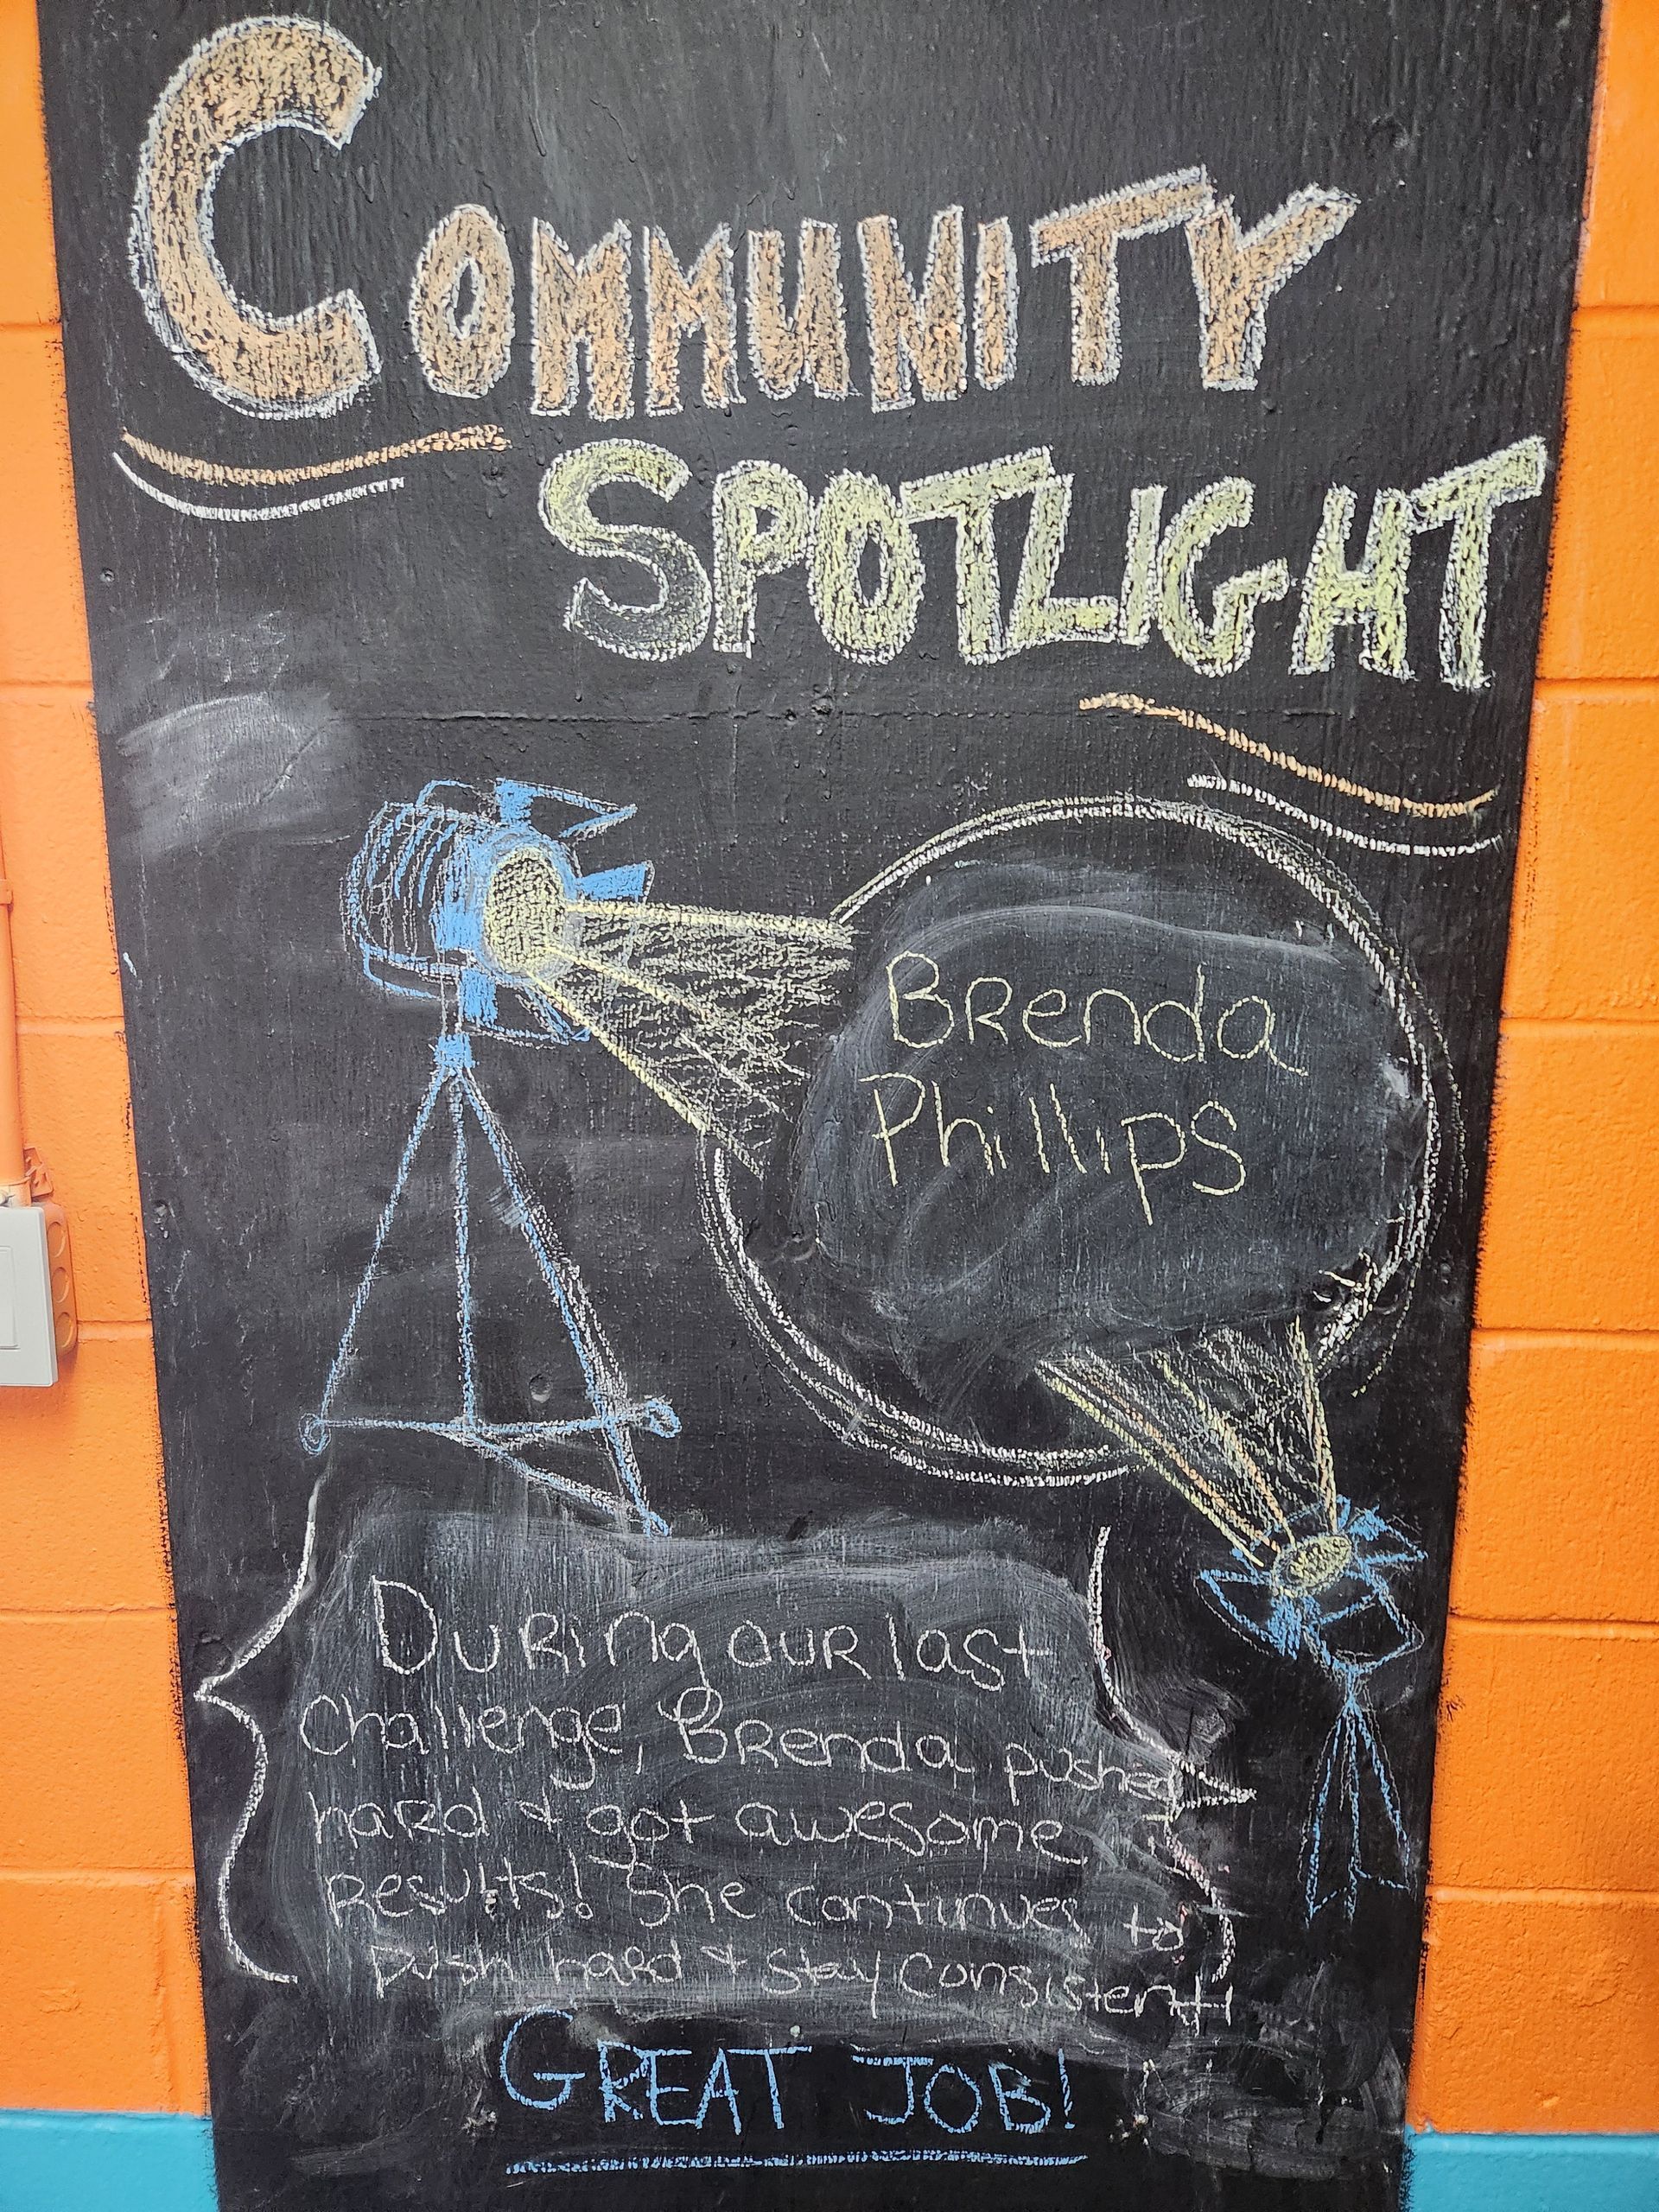 COMMUNITY
SPOTLIGHT
Brenda
Phillips
During our last
Challenge, Brenda pushed
hard + got awesome
results! She continues to
push hard + stay consistent!
GREAT JOB!